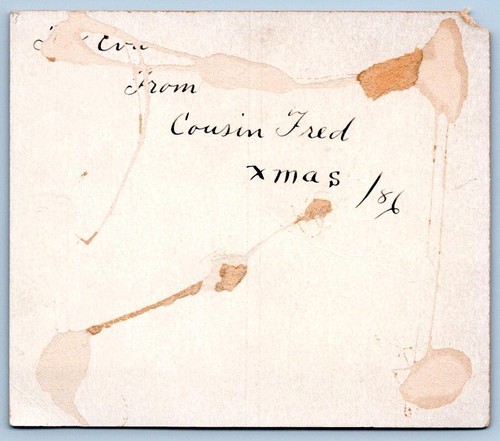 From
Cousin Fred
xmas /86